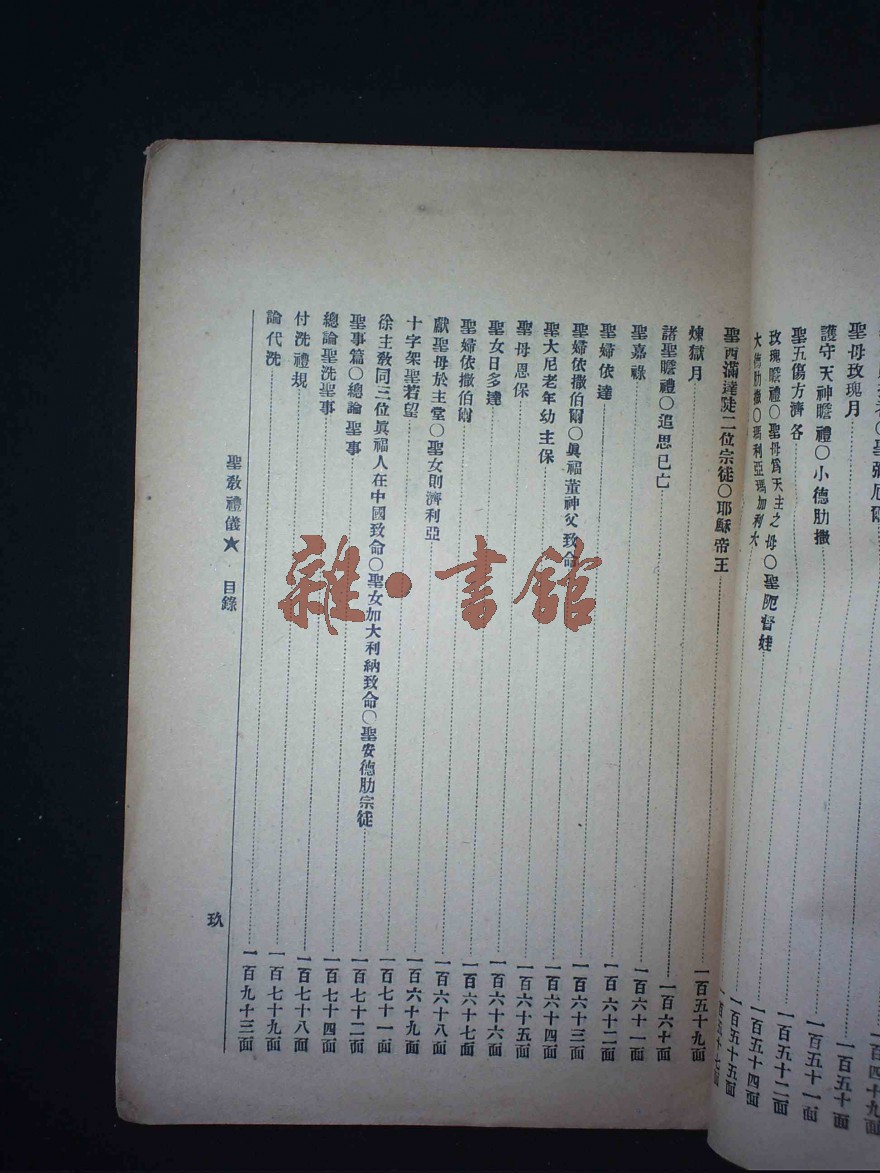 聖彌厄爾……一百四十九面
聖母玫瑰月……一百五十面
護守天神瞻禮〇小德肋撒……一百五十一面
聖五傷方濟各……一百五十二面
玫瑰瞻禮〇聖母爲天主之母〇聖阨督娃……一百五十四面
大德肋撒〇瑪利亞瑪加利大……一百五十五面
聖西滿達陡二位宗徒〇耶穌帝王……一百五十七面
煉獄月……一百五十九面
諸聖瞻禮〇追思已亡……一百六十面
聖嘉祿……一百六十一面
聖婦依達……一百六十二面
聖婦依撒伯爾〇眞福董神父致命……一百六十三面
聖大尼老年幼主保……一百六十四面
聖母恩保……一百六十五面
聖女日多達……一百六十六面
聖婦依撒伯爾……一百六十七面
獻聖母於主堂〇聖女則濟利亞……一百六十八面
十字架聖若望……一百六十九面
徐主敎同三位眞福人在中國致命〇聖女加大利納致命〇聖安德肋宗徒……一百七十一面
聖事篇〇總論聖事……一百七十二面
總論聖洗聖事……一百七十四面
付洗禮規……一百七十八面
論代洗……一百七十九面
一百九十三面
聖敎禮儀★ 目錄 玖
雜·書館